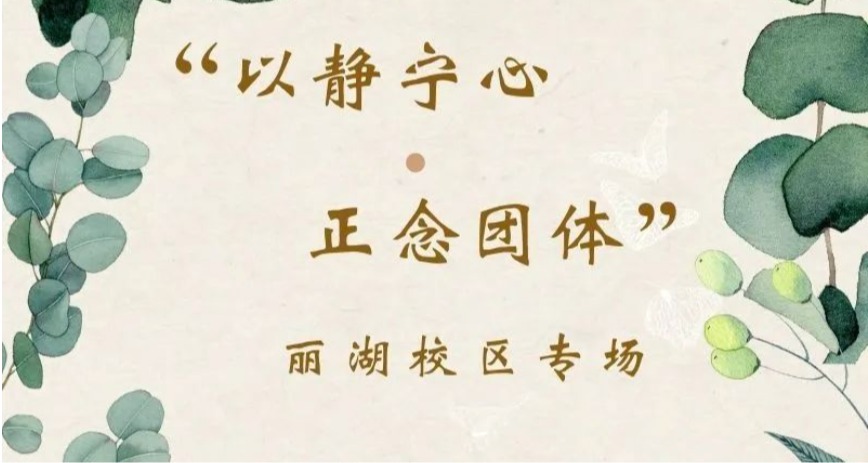 “以静宁心
•
正念团体”
丽湖校区专场